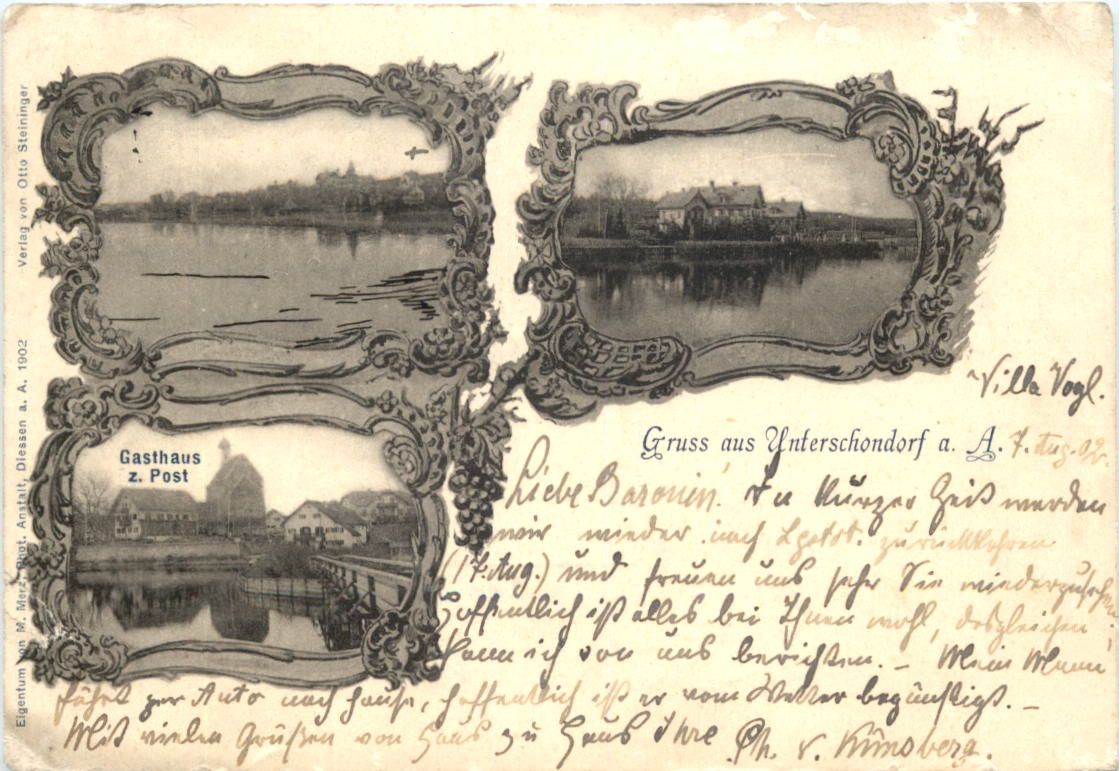 Verlag von Otto Steininger
Eigentum von M. Merz, Phot. Anstalt, Diessen a. A. 1902
Gasthaus
z. Post
Villa Vogl.
Gruss aus Unterschondorf a. A. 7. Aug. 02.
Liebe Baronin! In kurzer Zeit werden
wir wieder nach zurückkehren
(17. Aug.) und freuen uns sehr Sie wiederzusehen
Hoffentlich ist alles bei Ihnen wohl, desgleichen
kann ich von uns berichten. – Mein Mann
fährt per Auto nach Hause, hoffentlich ist er vom Wetter begünstigt. –
Mit vielen Grüßen von Haus zu Haus Ihre Ph. v. Künsberg.